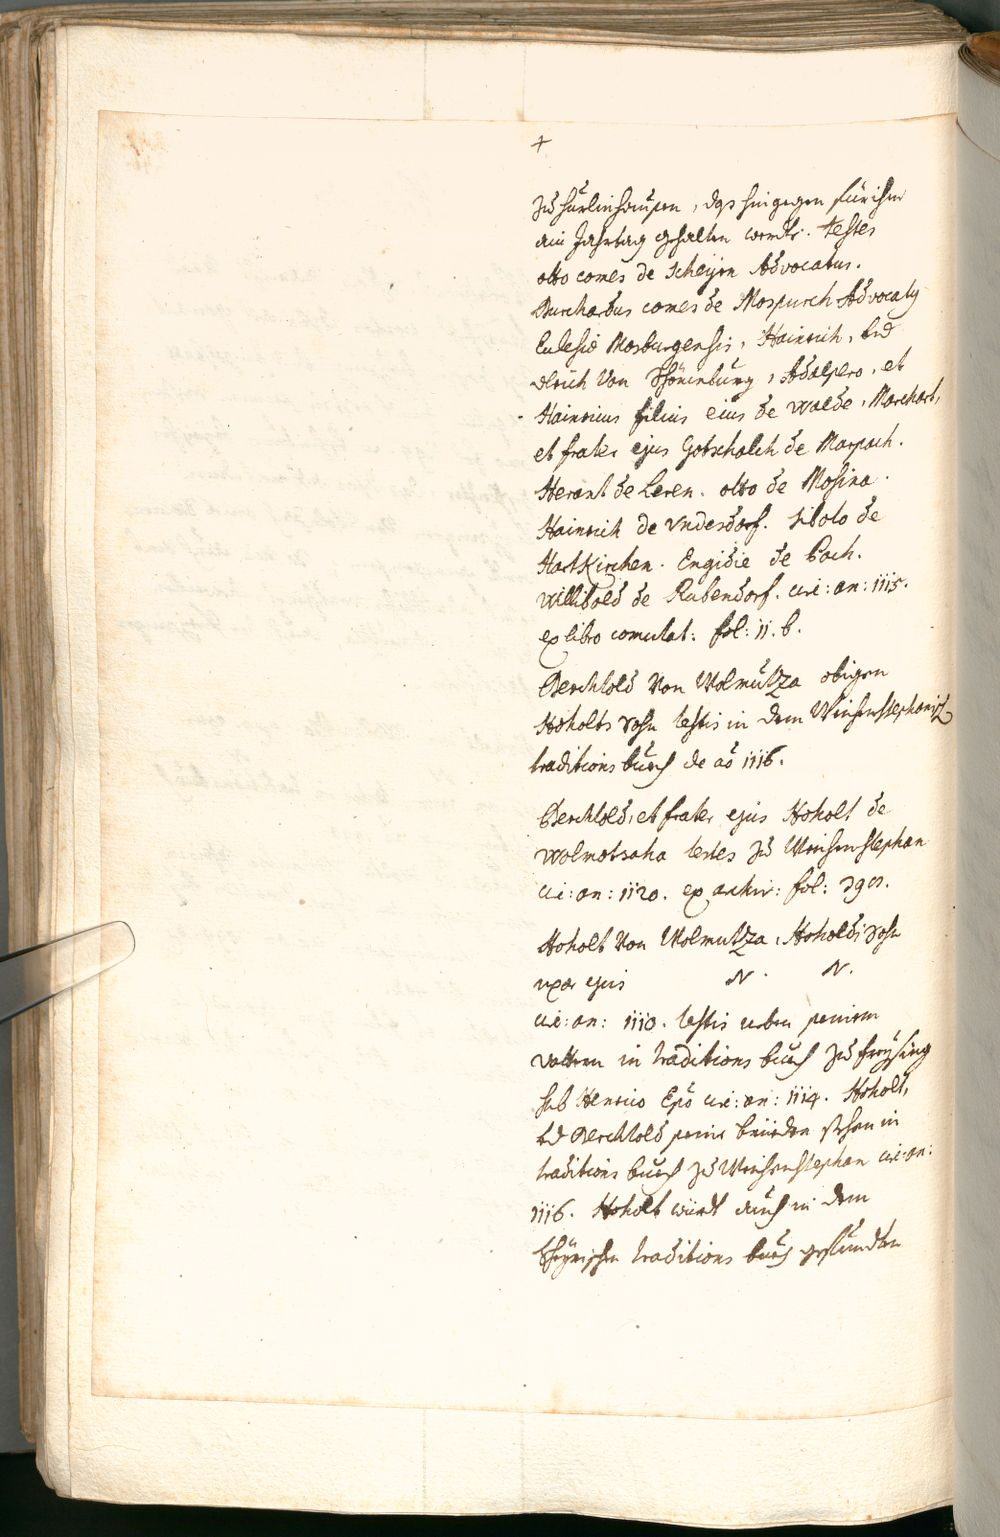 +
zu hürlinshausen, das hingegen für ihn
ain Jahrtag gehalten werde. testes
otto comes de Scheyrn Advocatus.
Burchardus comes de Mospurch Advocatus
Eclesiæ Mosburgensis, Hainrich, vnd
Vlrich Von Schönenburg, Adalpero, et
Hainricus filius eius de Walde, Marchart,
et frater ejus Gotschalch de Marpach.
Herant de Leren. otto de Mosina.
Hainrich de Vndersdorf. Sibolo de
Hartkirchen. Engidie de Pach.
Willibold de Rubendorf. circ: an: 1115.
ex libro comutat: fol: 11. b.
Berchtold Von Wolmutza obigen
Hoholts Sohn testis in dem Weichenstephanisch
traditions buech de aõ 1116.
Berchtold, et frater ejus Hoholt de
Wolmotsaha testes zu Weichenstephan
circ: an: 1120. ex archiv: fol:
Hoholt Von Wolmutza, Hoholdi Sohn
uxor ejus N. N.
circ: an: 1110. testis neben seinem
Vattern in traditions buech zu freysing
sub Henrico Epõ circ: an: 1114. Hoholt,
vnd Berchtold seine brüeder stehen in
traditions buech zu Weichenstephan circ: an:
1116. Hoholt würdt auch in dem
Scheyrischen traditions buech gefundten